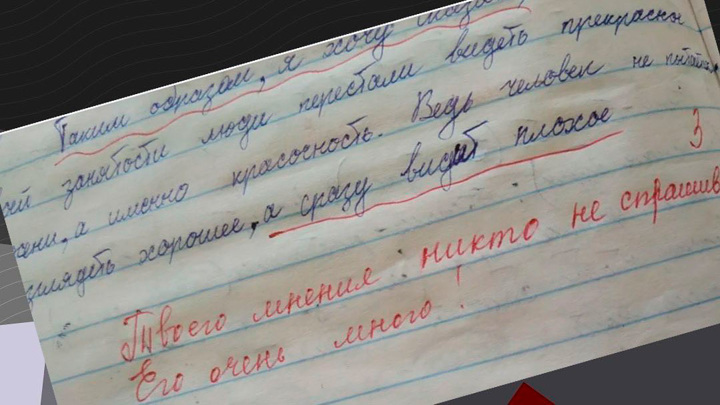 Таким образом, я хочу сказать,
занятости люди перестали видеть прекрасны
а именно красочность. Ведь человек не пытается
взглядеть хорошее, а сразу видит плохое
3
Твоего мнения никто не спрашив
Его очень много!